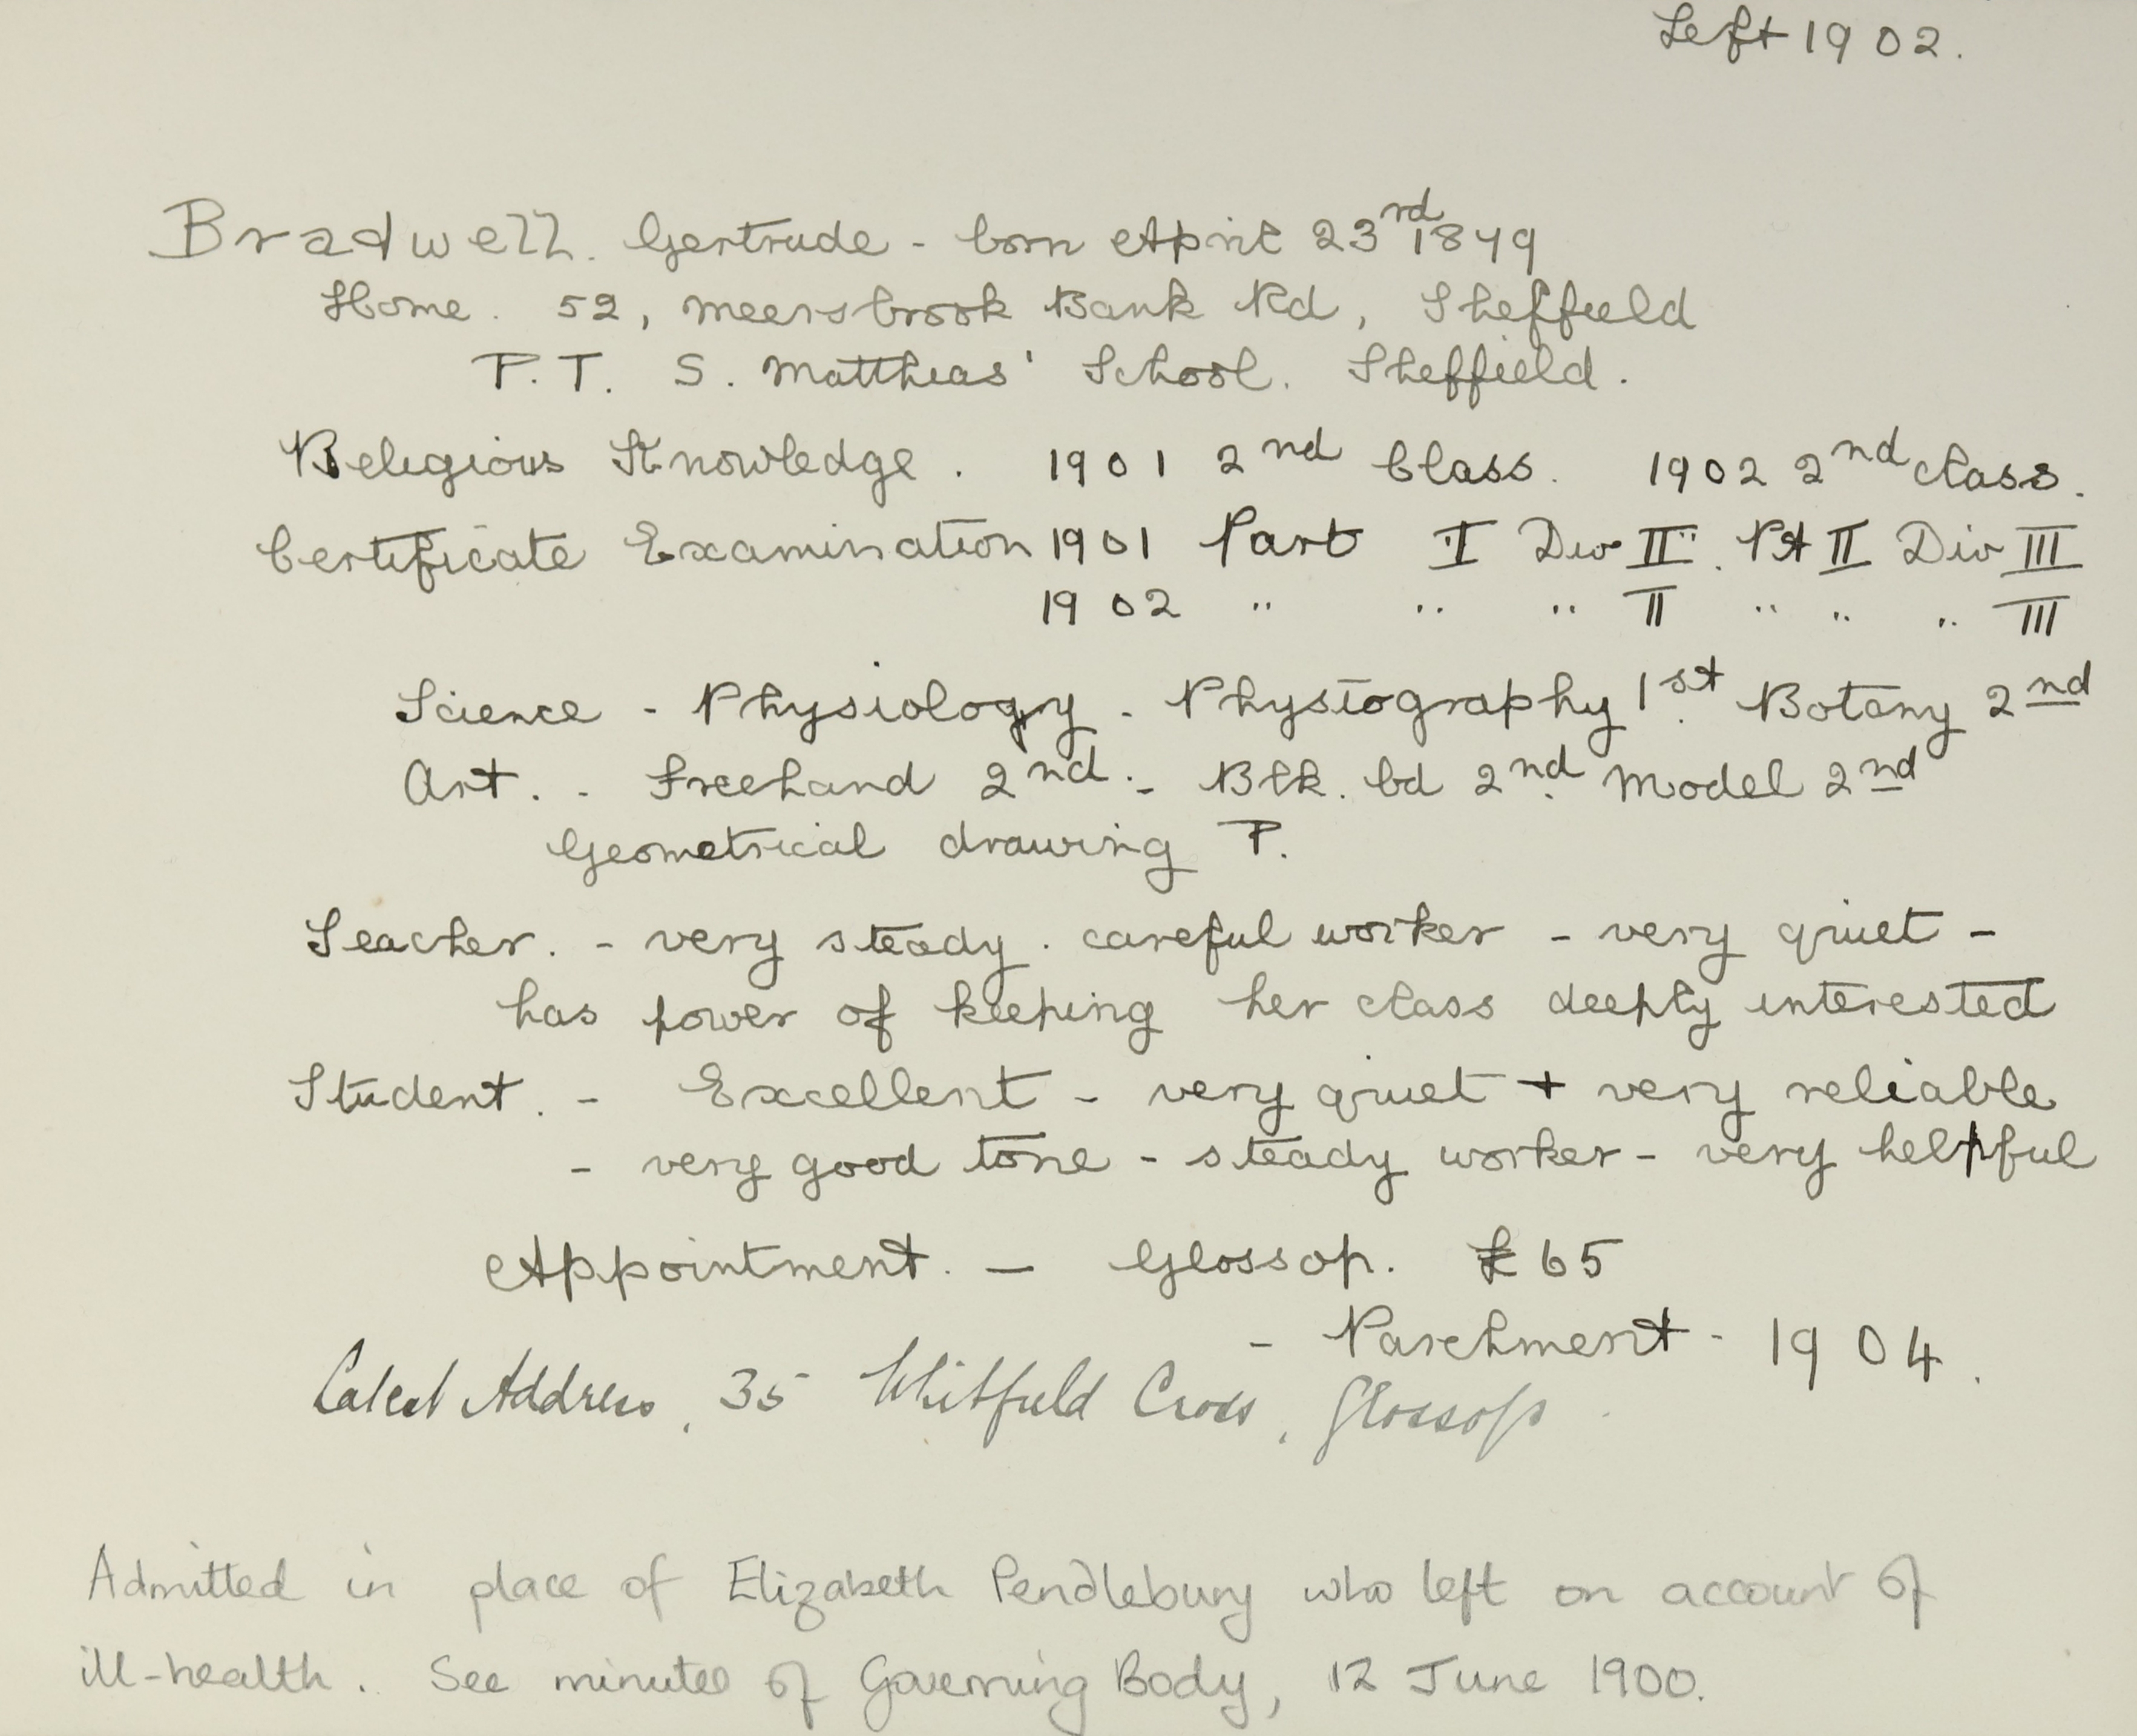 Left 1902.
Bradwell. Gertrude - born April 23rd 1879
Home. 52, Meersbrook Bank Rd, Sheffield
P.T. S. Matthias' School. Sheffield.
Religious Knowledge. 1901 2nd Class. 1902 2nd class.
Certificate Examination 1901 Part I Div II. Pt II Div III
1902 " " " II " " " III
Science - Physiology - Physiography 1st Botany 2nd
Art. - Freehand 2nd - Blk. bd 2nd Model 2nd
Geometrical drawing P.
Teacher. - very steady. careful worker - very quiet -
has power of keeping her class deeply interested
Student. - Excellent - very quiet + very reliable
- very good tone - steady worker - very helpful
Appointment. - Glossop. £65
- Parchment - 1904.
Latest Address, 35 Whitfield Cross, Glossop.
Admitted in place of Elizabeth Pendlebury who left on account of
ill-health. See minutes of Governing Body, 12 June 1900.